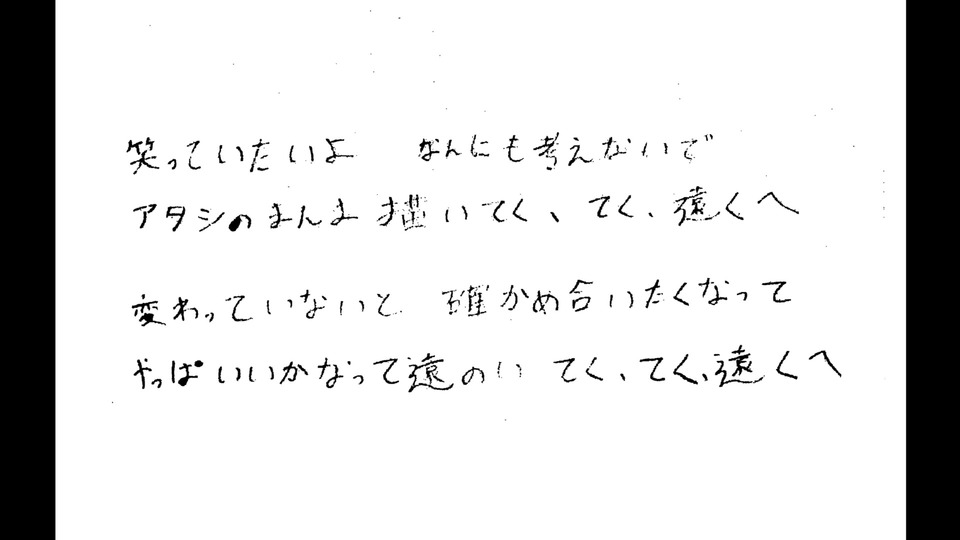 笑っていたいよ なんにも考えないで
アタシのまんま 描いてく、てく、遠くへ
変わっていないと 確かめ合いたくなって
やっぱいいかなって遠のい てく、てく、遠くへ